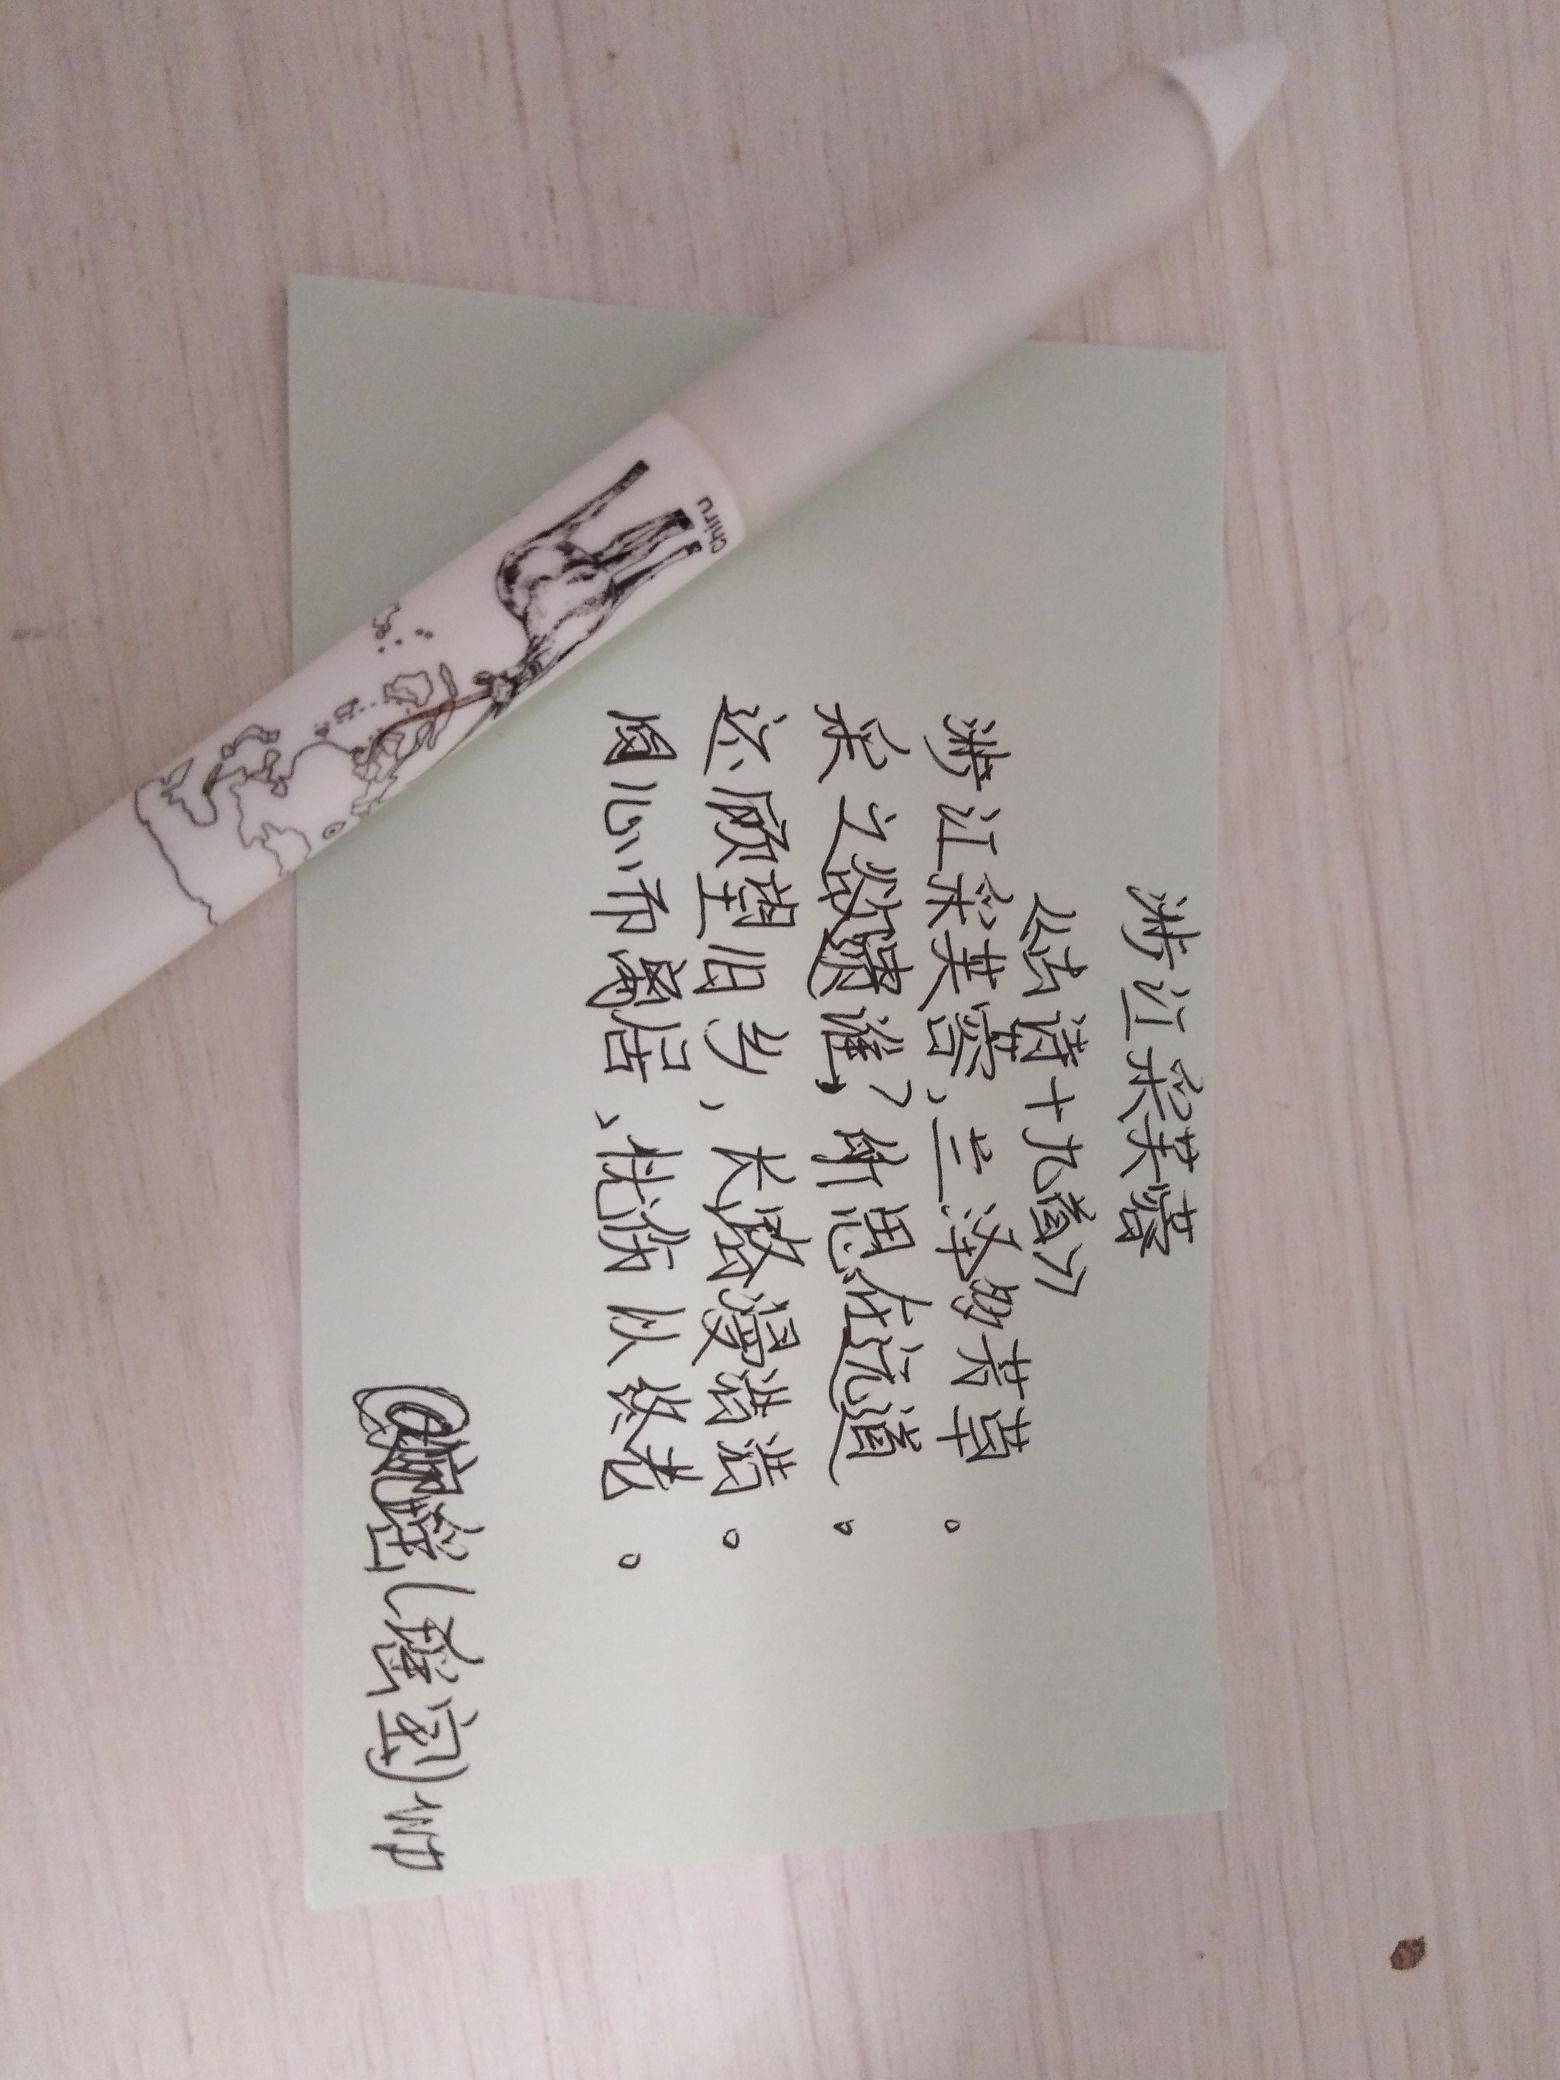 涉江采芙蓉
《古诗十九首》
涉江采芙蓉，兰泽多芳草。
采之欲遗谁？所思在远道。
还顾望旧乡，长路漫浩浩。
同心而离居，忧伤以终老。
(瑶宝)
Chiru